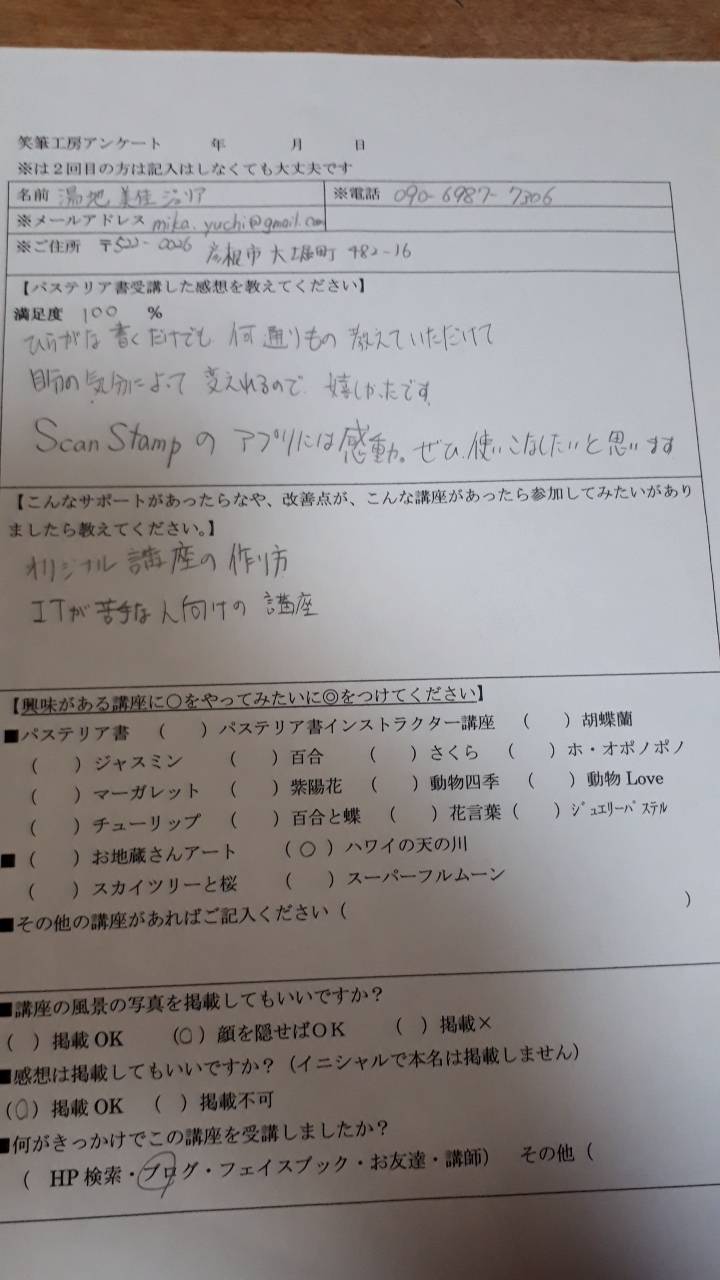 笑筆工房アンケート 年 月 日
※は2回目の方は記入はしなくても大丈夫です
名前 湯地 美佳ジュリア ※電話 090-6987-7306
※メールアドレス mika.yuchi@gmail.com
※ご住所 〒522-0026 彦根市大堀町 482-16
【パステリア書受講した感想を教えてください】
満足度 100 %
ひらがな書くだけでも 何通りもの 教えていただけて
自分の気分によって 変えれるので 嬉しかったです
Scan Stampの アプリには感動。ぜひ使いこなしたいと思います
【こんなサポートがあったらなや、改善点が、こんな講座があったら参加してみたいがあり
ましたら教えてください。】
オリジナル 講座の 作り方
ITが苦手な人向けの 講座
【興味がある講座に○をやってみたいに◎をつけてください】
■パステリア書 ( )パステリア書インストラクター講座 ( )胡蝶蘭
( )ジャスミン ( )百合 ( )さくら ( )ホ・オポノポノ
( )マーガレット ( )紫陽花 ( )動物四季 ( )動物 Love
( )チューリップ ( )百合と蝶 ( )花言葉 ( )ジュエリーパステル
■( )お地蔵さんアート (○)ハワイの天の川
( )スカイツリーと桜 ( )スーパーフルムーン
■その他の講座があればご記入ください( )
■講座の風景の写真を掲載してもいいですか?
( )掲載 OK (○)顔を隠せばOK ( )掲載×
■感想は掲載してもいいですか?(イニシャルで本名は掲載しません)
(○)掲載 OK ( )掲載不可
■何がきっかけでこの講座を受講しましたか?
( HP 検索・ブログ・フェイスブック・お友達・講師) その他(